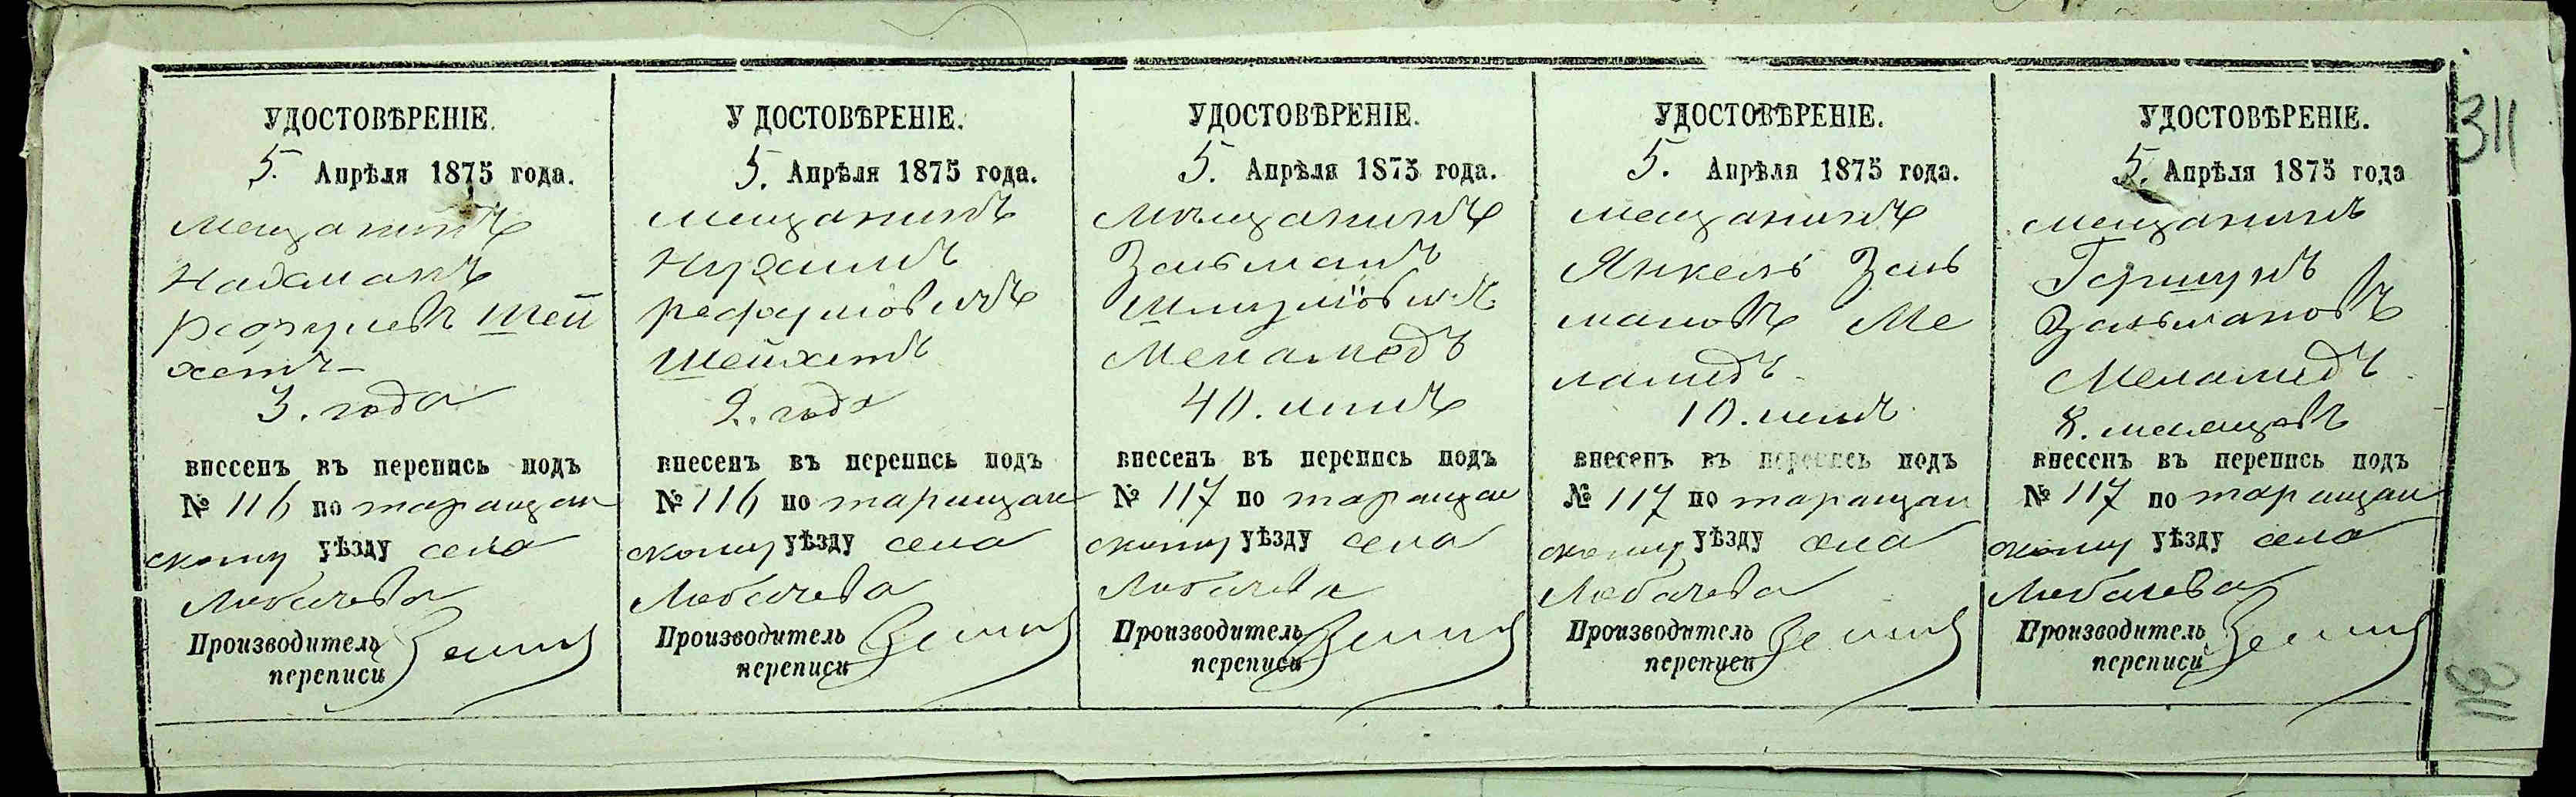 УДОСТОВѢРЕНІЕ.
5. Апрѣля 1875 года.
мещанинъ
Нахманъ
Шей
хетъ
3. года
внесенъ въ перепись подъ
№ 116 по таращан
скому уѣзду села
Любачева
Производитель
переписи
У ДОСТОВѢРЕНІЕ.
5. Апрѣля 1875 года.
мещанинъ
Нухимъ
Шейхетъ
2. года
внесенъ въ перепись подъ
№ 116 по таращан
скому уѣзду села
Любачева
Производитель
переписи
УДОСТОВѢРЕНІЕ.
5. Апрѣля 1875 года.
мещанинъ
Зальманъ
Шмулiовичъ
Меламедъ
40. летъ
внесенъ въ перепись подъ
№ 117 по таращан
скому уѣзду села
Любачева
Производитель
переписи
УДОСТОВѢРЕНІЕ.
5. Апрѣля 1875 года.
мещанинъ
Янкель Заль
мановъ Ме
ламедъ
10. летъ
внесенъ въ перепись подъ
№ 117 по таращан
скому уѣзду села
Любачева
Производитель
переписи
УДОСТОВѢРЕНІЕ.
5. Апрѣля 1875 года
мещанинъ
Гершунъ
Зальмановъ
Меламедъ
8. месяцовъ
внесенъ въ перепись подъ
№ 117 по таращан
скому уѣзду села
Любачева
Производитель
переписи
311
311